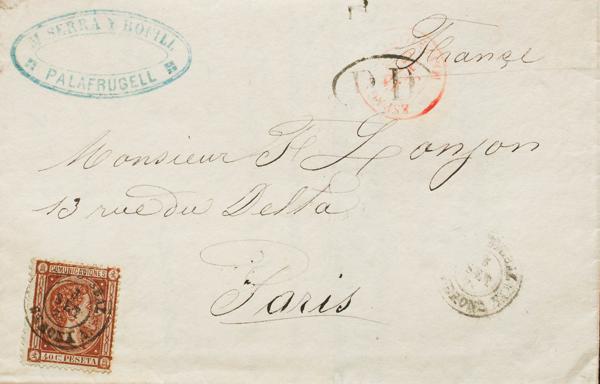 M. SERRA Y BOFILL
PALAFRUGELL
France
P.D.
Monsieur F Lonjon
13 rue du Delta
Paris
COMUNICACIONES
40 Cs PESETA